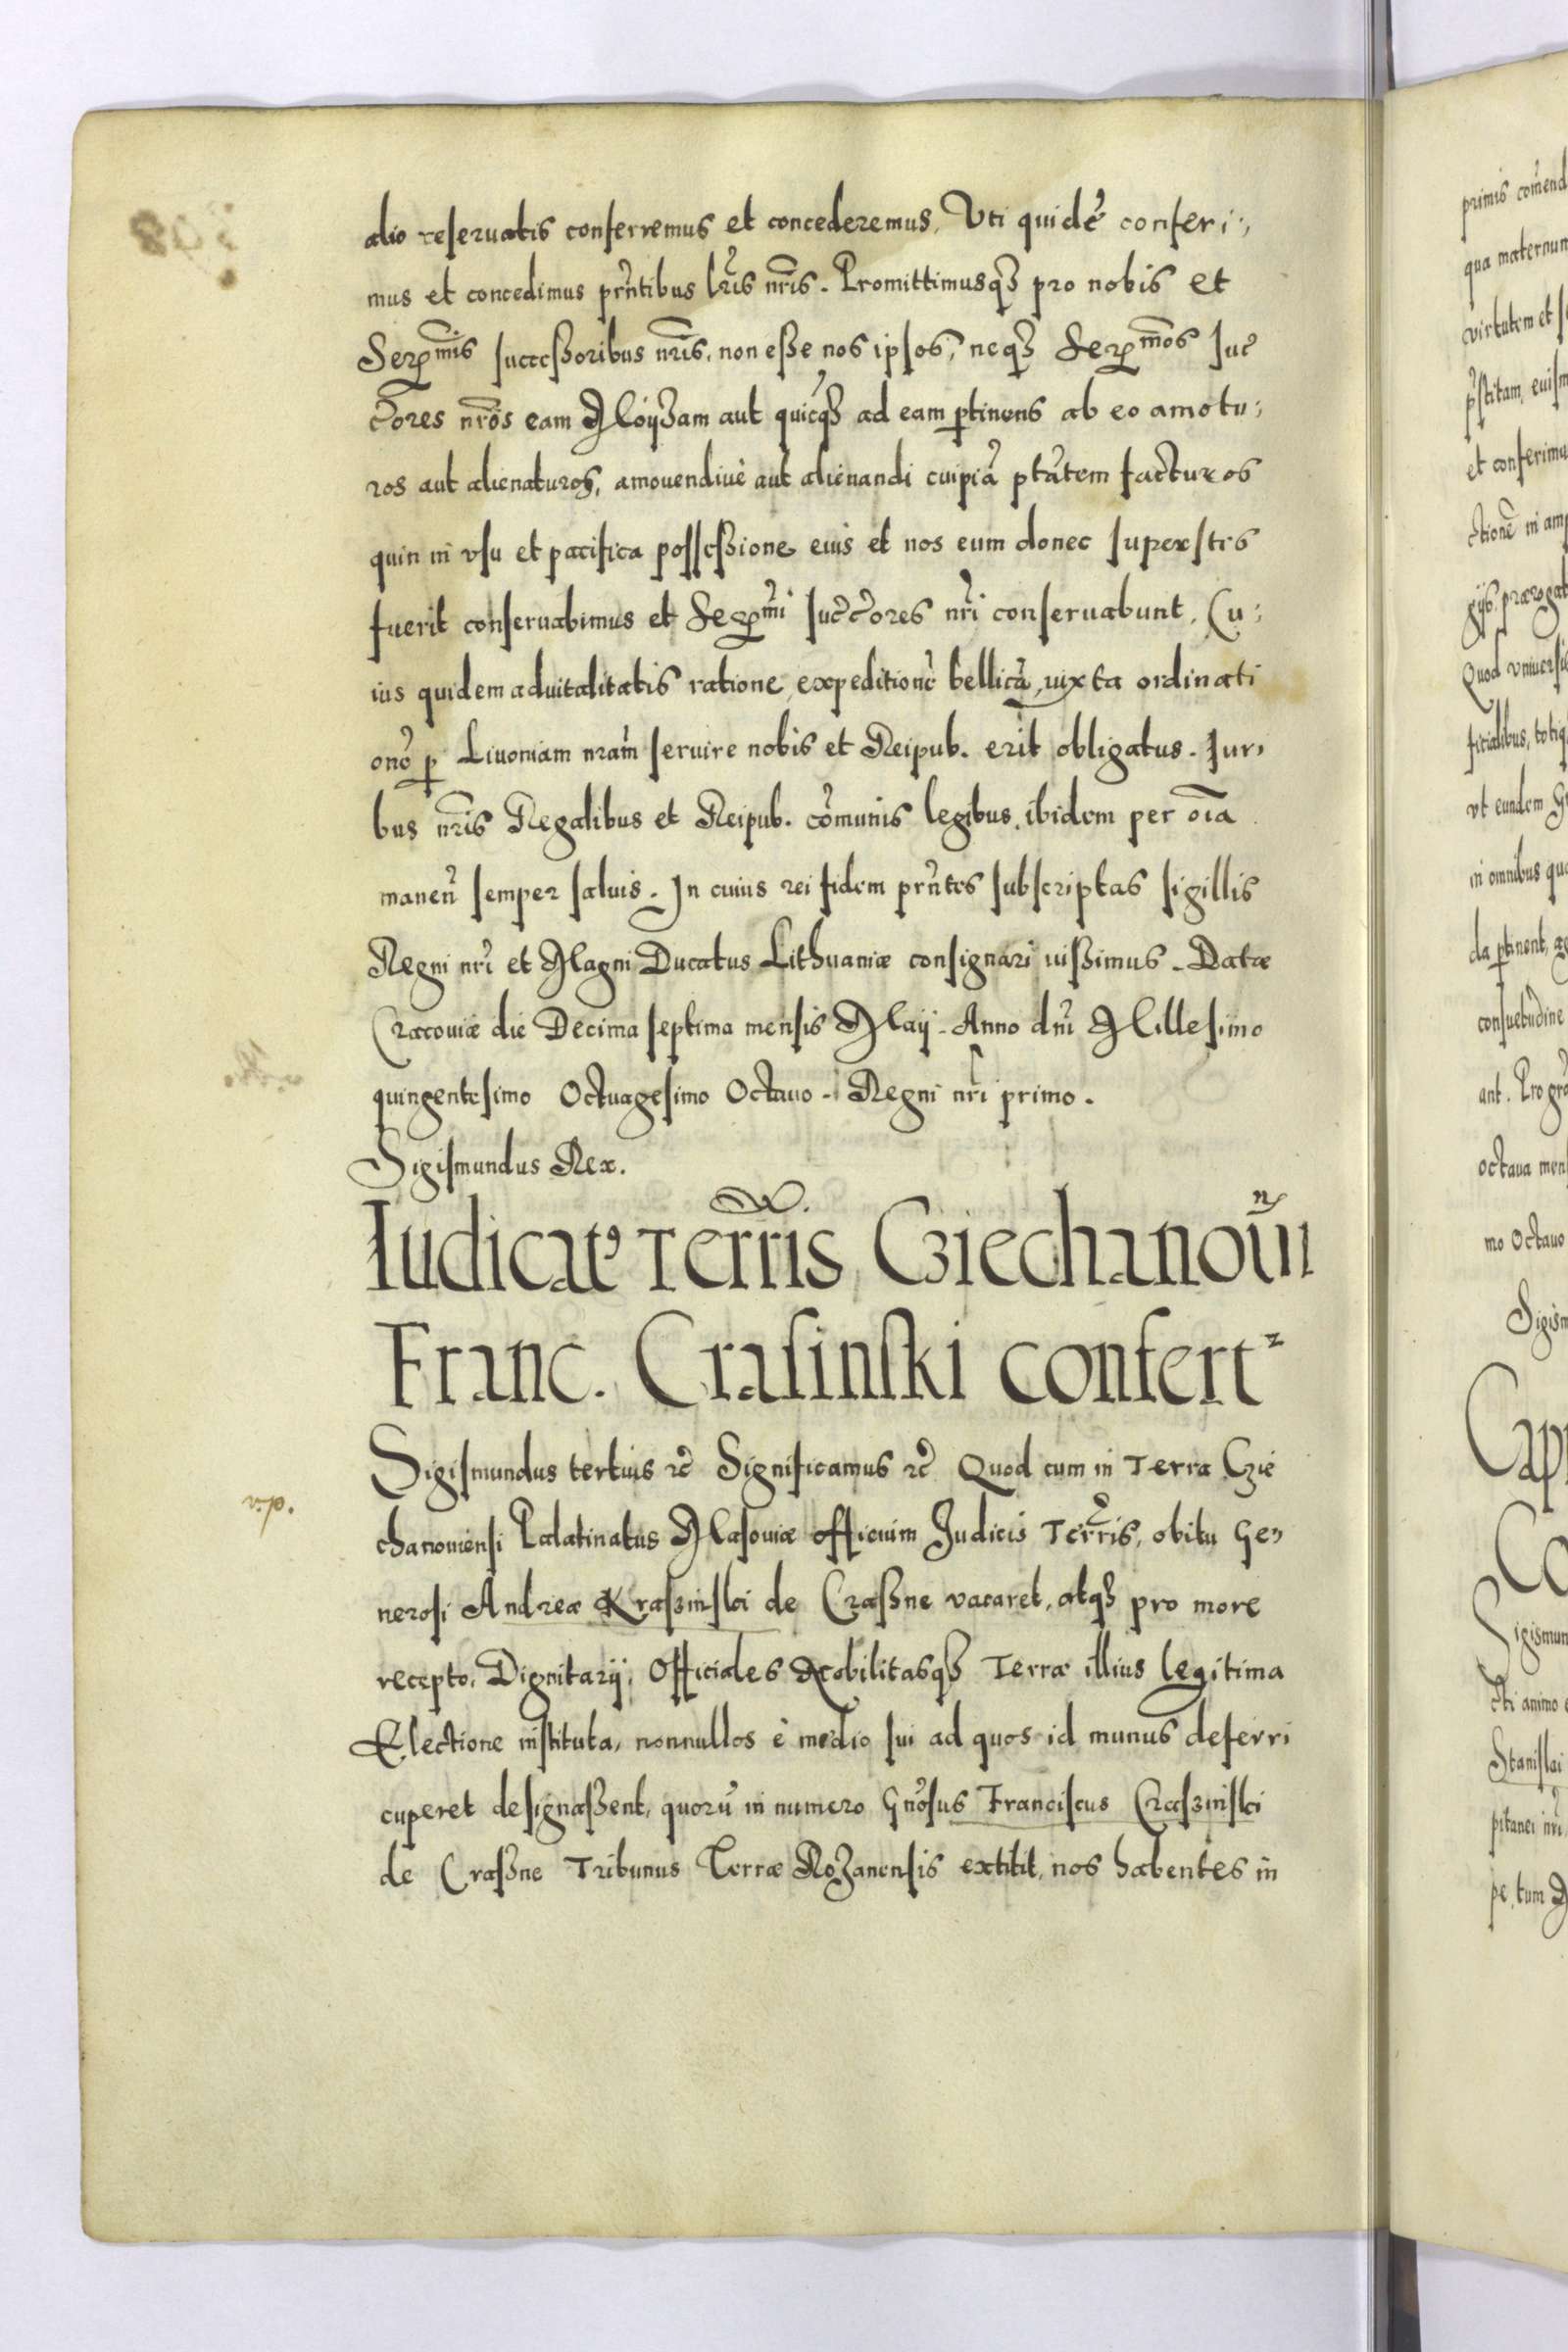 alio reseruatis conferremus et concederemus, Vti quidē conferi:
mus et concedimus prn̄tibus lrīs nrīs. Promittimusqʒ pro nobis et
Serᵐⁱˢ successoribus nrīs, non esse nos ipsos, neqʒ Serᵐᵒˢ suc
c̄ores nrōs eam Aloyzam aut quicqʒ ad eam ptinens ab eo amotu:
ros aut alienaturos, amouendiuè aut alienandi cuipiā ptātem facturos
quin in vsu et pacifica possessione eius et nos eum donec superstes
fuerit conseruabimus et Serᵐⁱ succ̄ores nrī conseruabunt. Cu:
ius quidem aduitalitatis ratione, expeditionē bellicā, iuxta ordinati
onē p Liuoniam nram̄ seruire nobis et Reipub. erit obligatus. Juri
bus nrīs Regalibus et Reipub. cōmunis legibus, ibidem per oīa
manen̄ semper saluis. In cuius rei fidem prn̄tes subscriptas sigillis
Regni nrī et Magni Ducatus Lithuaniæ consignari iussimus. Datæ
Cracouiæ die Decima septima mensis Maij. Anno dnī Millesimo
quingentesimo Octuagesimo Octauo. Regni nrī primo.
Sigismundus Rex.
Iudicat⁹ Terrīs Cziechanouⁿ̄
Franc. Crasinski confertᶻ
Sigismundus tertius ꝛc̄ Significamus ꝛc̄ Quod cum in Terra Czie
chanouiensi Palatinatus Masouiæ officium Judicis Terrīs, obitu Ge-
nerosi Andreæ Kraszinski de Crassne vacaret, atqʒ pro more
recepto, Dignitarij, Officiales Nobilitasqʒ Terræ illius legitima
Electione instituta, nonnullos è medio sui ad quos id munus deferri
cuperet designassent, quorū in numero Gnōsus Franciscus Craszinski
de Crassne Tribunus Terræ Rozanensis extitit, nos habentes in
primis com̄end
qua maternum
virtutem et
p̄stitam, euism
et conferimu
ctionē in am
gijs, prærogat
Quod vniuersis
ficialibus, totiq
vt eundem G
in omnibus qua
da ptinent,
consuetudine
ant. Pro
octaua men
mo Octauo
Sigism
Capi
Co
Sigismun
cti animo
Stanislai
pitanei nrī
pe, tum